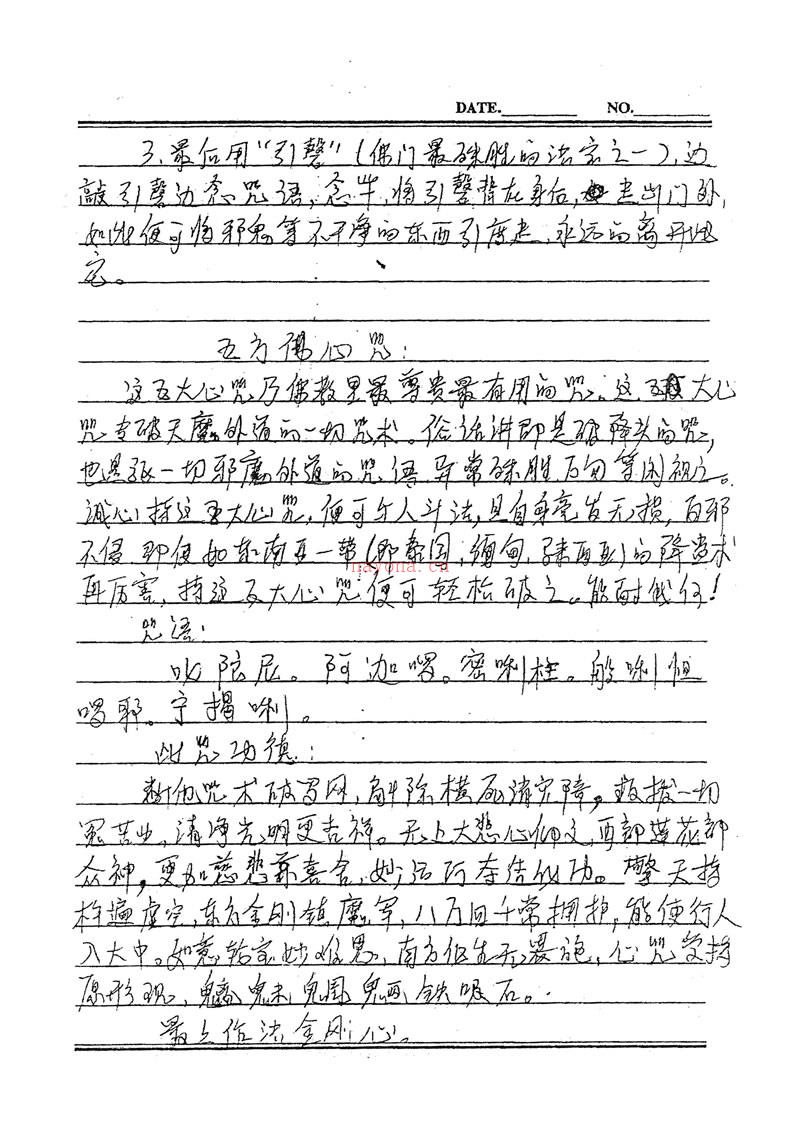 DATE. NO.
3、最后用“引磬”(佛门最殊胜的法宝之一),边
敲引磬边念咒语,念毕,将引磬背在身后,走出门外,
如此便可将邪鬼等不干净的东西引度走,永远的离开此
宅。
五方佛心咒:
这五大心咒乃佛教里最尊贵最有用的咒。这五大心
咒专破天魔外道的一切咒术。俗话讲即是破降头的咒,
也是破一切邪魔外道的咒语,异常殊胜,万勿等闲视之。
诚心持这五大心咒,便可与人斗法,且自身毫发无损,百邪
不侵,即使如东南亚一带(即泰国,缅甸,马来西亚)的降头术
再厉害,持这五大心咒便可轻松破之。能耐我何!
nayona.cn
咒语:
吹陀尼。阿迦啰。密唎柱。般唎怛
啰耶。宁揭唎。
此咒功德:
断他咒术破罗网,解除横死清灾障,救拔一切
冤苦业,清净光明更吉祥。无上大悲心佃文,西部莲花部
众神,更加慈悲兼喜舍,妙法阿夺结似功。擎天指
柱遍虚空,东方金刚镇魔军,八万四千常拥护,能使行人
入大中。如意轮宝妙难思,南方但生无震诡,心咒受持
原形现,魑魅魍魉铁吸石。
最上作法金刚心。